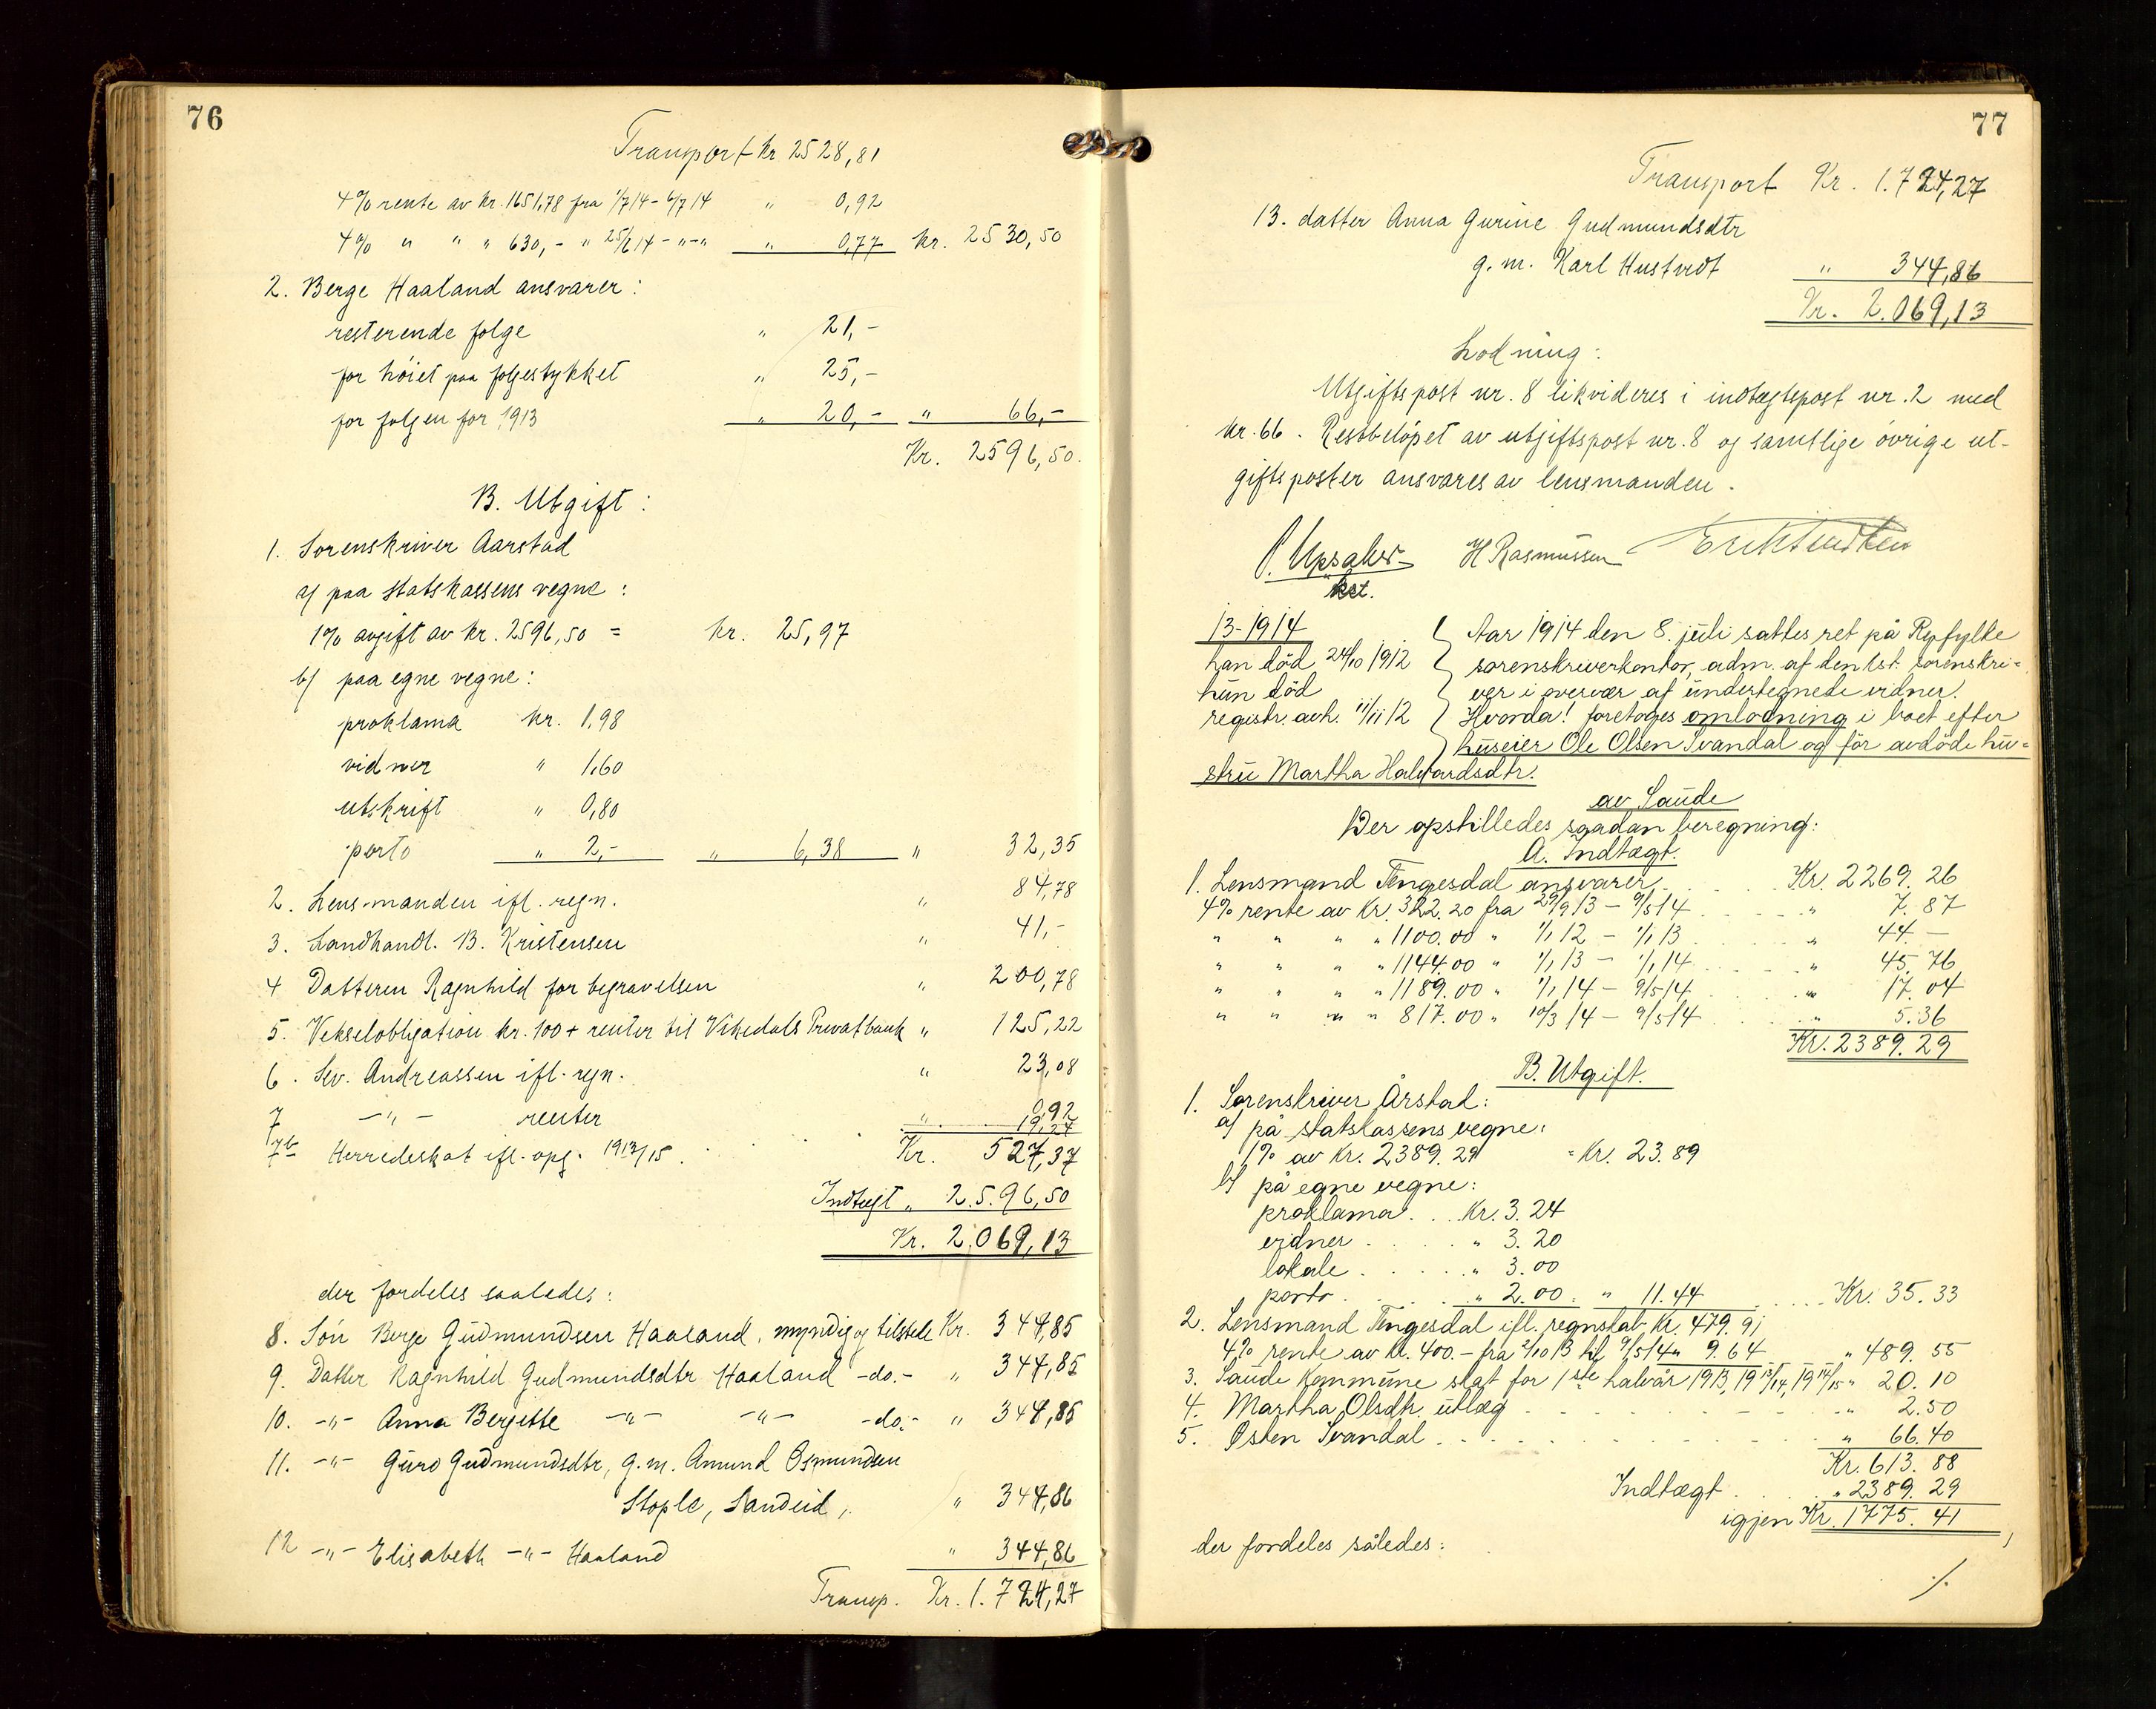 76
Transport Kr 2528,81
4% rente av kr. 1651,78 fra 1/7 14 - 6/7 14 " 0,92
4% " " " 630,- " 25/6 14 - "-" " 0,77 Kr. 2530,50
2. Berge Haaland ansvarer:
resterende følge " 21,-
for höiet paa følgestykket " 25,-
for følgen for 1913 " 20,- " 66,-
Kr. 2596,50.
B. Utgift:
1. Sorenskriver Aarstad
a) paa statskassens vegne:
1% avgift av kr. 2596,50 = kr. 25,97
b) paa egne vegne:
proklama kr. 1,98
vidner " 1,60
utskrift " 0,80
porto " 2,- " 6,38 " 32,35
2. Lensmanden ifl. regn. " 84,78
3. Landhandl. B. Kristensen " 41,-
4 Datteren Ragnhild for begravelsen " 200,78
5. Vekselobligation kr. 100 + renter til Vikedals Privatbank " 125,22
6. Sev. Andreassen ifl. regn. " 23,08
7 -"- renter " 0,92
7b Herredeskat ifl. opg. 1913/15 . 19,24
Kr. 527,37
Indtægt " 2.596,50
Kr. 2.069,13
der fordeles saaledes:
8. Sön Berge Gudmundsen Haaland, myndig og tilstede Kr. 344,85
9. Datter Ragnhild Gudmundsdtr Haaland -do.- " 344,85
10. -"- Anna Bergitte -"- -"- -do.- " 344,85
11. -"- Guro Gudmundsdtr, g.m. Amund Osmundsen
Stople, Sandeid, " 344,86
12 -"- Elisabeth -"- Haaland " 344,86
Transp. Kr. 1.724,27
77
Transport Kr. 1.724,27
13. datter Anna Gurine Gudmundsdtr
g.m. Karl Hustvedt " 344,86
Kr. 2.069,13
Lodning:
Utgiftspost nr. 8 likvideres i indtægtspost nr. 2 med
kr. 66. Restbelöpet av utgiftspost nr. 8 og samtlige övrige ut-
giftsposter ansvares av lensmanden.
Upsaker H Rasmussen
kst.
13-1914
han död 24/10 1912
hun död
registr. avh. 11/11 12
Aar 1914 den 8. juli sattes ret på Ryfylke
sorenskriverkontor, adm. af den kst. sorenskri-
ver i overvær af undertegnede vidner.
Hvorda! foretoges omlodning i boet efter
huseier Ole Olsen Svandal og før avdöde hu-
stru Martha Halvardsdtr.
av Saude
Der opstilledes saadan beregning:
A. Indtægt.
1. Lensmand Tengesdal ansvarer . . . Kr. 2269.26
4% rente av kr. 322.20 fra 29/9 13 - 9/5 14 . . . " 7.87
" " " " 1100.00 " 1/1 12 - 1/1 13 . . . " 44.-
" " " " 1144.00 " 1/1 13 - 1/1 14 . . . " 45.76
" " " " 1189.00 " 1/1 14 - 9/5 14 . . . " 17.04
" " " " 817.00 " 10/3 14 - 9/5 14 . . . " 5.36
Kr. 2389.29
B. Utgift.
1. Sorenskriver Årstad:
a) på statskassens vegne:
1% av kr. 2389.29 = Kr. 23.89
b) på egne vegne:
proklama . . . Kr. 3.24
vidner . . . " 3.20
lokale . . . " 3.00
porto . . . " 2.00 . " 11.44 . . . Kr. 35.33
2. Lensmand Tengesdal ifl. regnskab Kr. 479.91
4% rente av kr. 400.- fra 2/10 13 til 9/5 14 " 9.64 " 489.55
3. Saude Kommune skat for 1ste halvår 1913, 19 13/14, 19 14/15 " 20.10
4. Martha Olsdtr. utlæg . . . " 2.50
5. Østen Svandal . . . " 66.40
Kr. 613.88
Indtægt . . . " 2389.29
igjen Kr. 1775.41
der fordeles således:
./.